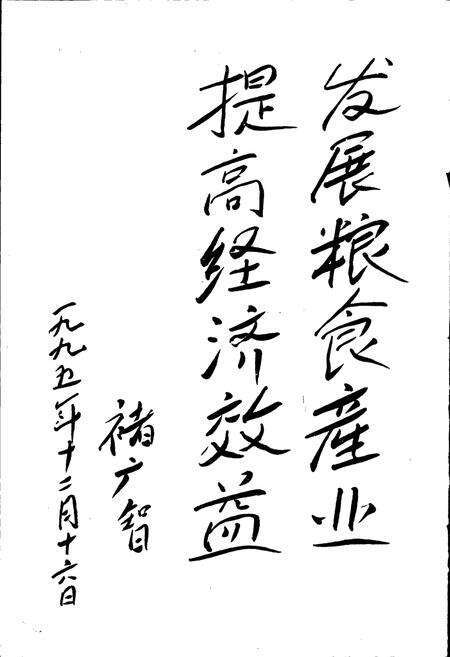 发展粮食產业
提高经济效益
褚广智
一九九五年十二月十六日